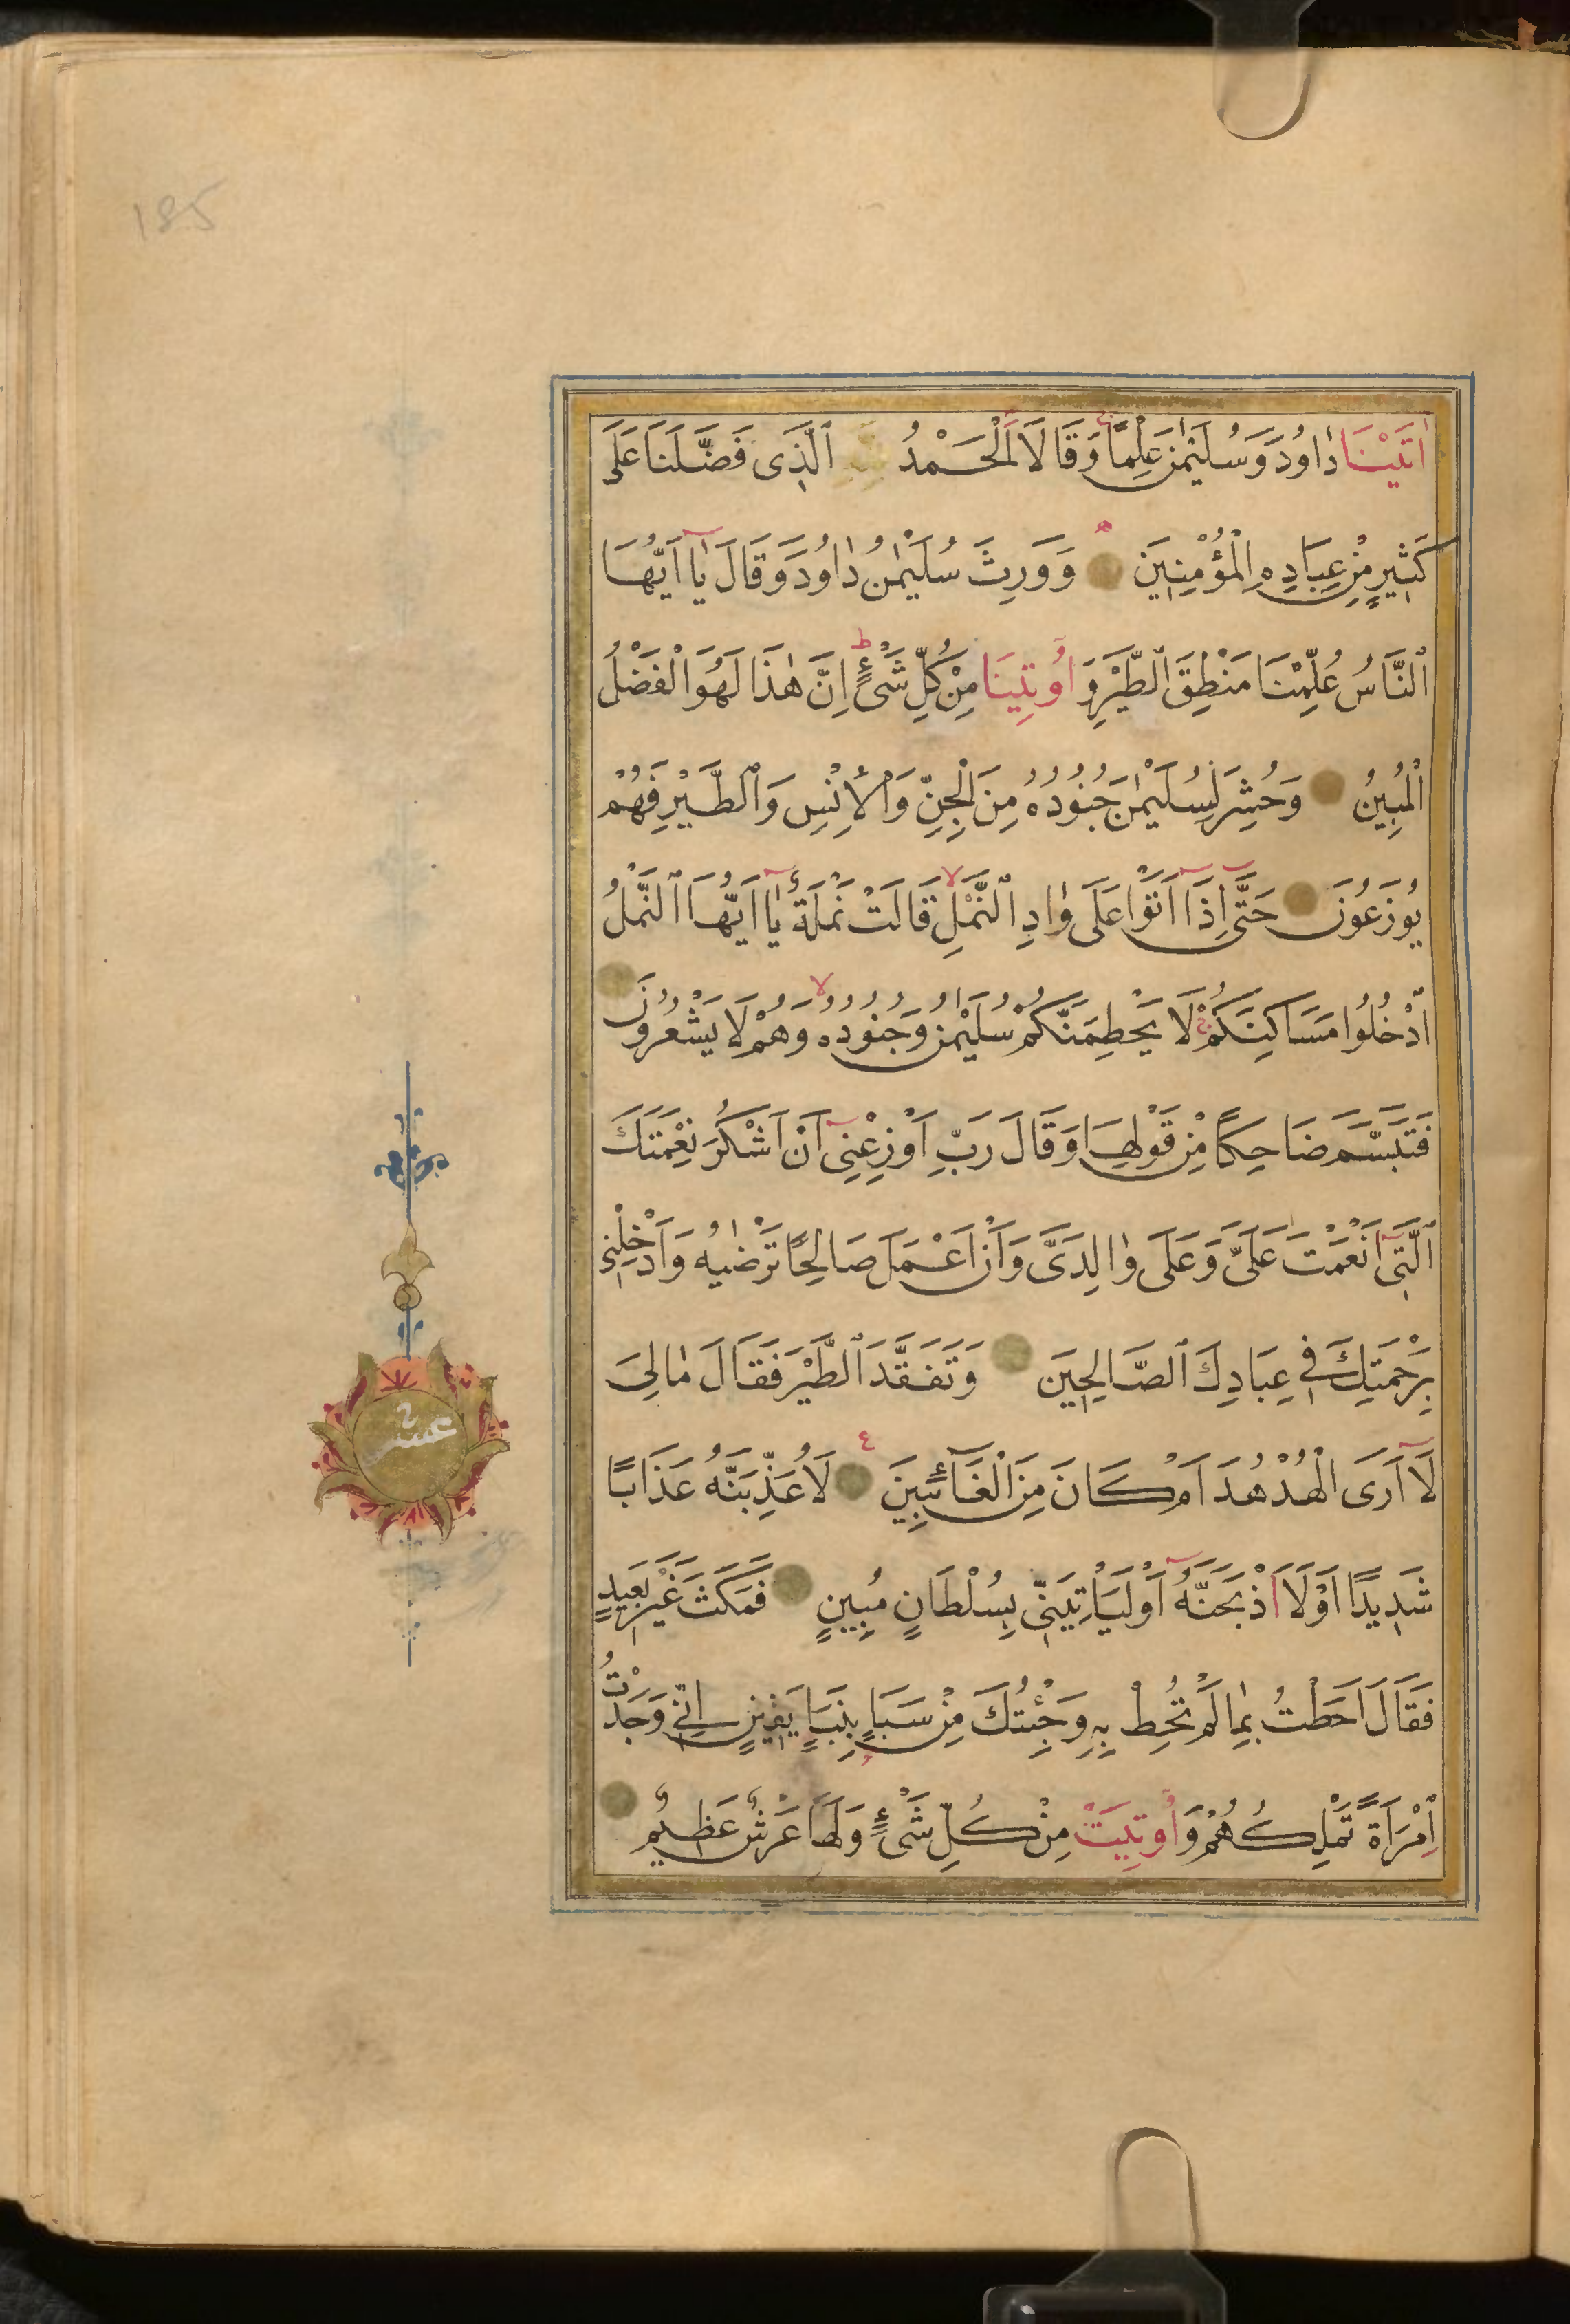 185
اٰتَيْنَا دٰاوُدَ وَسُلَيْمٰنَ عِلْمًا وَقَالَا الْحَمْدُ لِلّٰهِ الَّذِى فَضَّلَنَا عَلَى
كَثِيرٍ مِنْ عِبَادِهِ الْمُؤْمِنِينَ وَوَرِثَ سُلَيْمٰنُ دٰاوُدَ وَقَالَ يٰٓا اَيُّهَا
النَّاسُ عُلِّمْنَا مَنْطِقَ الطَّيْرِ وَاُوتِينَا مِنْ كُلِّ شَىْءٍ اِنَّ هٰذَا لَهُوَ الْفَضْلُ
الْمُبِينُ وَحُشِرَ لِسُلَيْمٰنَ جُنُودُهُ مِنَ الْجِنِّ وَالْاِنْسِ وَالطَّيْرِ فَهُمْ
يُوزَعُونَ حَتّٰٓى اِذَٓا اَتَوْا عَلَى وٰادِ النَّمْلِ قَالَتْ نَمْلَةٌ يٰٓا اَيُّهَا النَّمْلُ
ادْخُلُوا مَسَاكِنَكُمْ لَا يَحْطِمَنَّكُمْ سُلَيْمٰنُ وَجُنُودُهُ وَهُمْ لَا يَشْعُرُونَ
فَتَبَسَّمَ ضَاحِكًا مِنْ قَوْلِهَا وَقَالَ رَبِّ اَوْزِعْنِىٓ اَنْ اَشْكُرَ نِعْمَتَكَ
الَّتِىٓ اَنْعَمْتَ عَلَىَّ وَعَلَى وٰالِدَىَّ وَاَنْ اَعْمَلَ صَالِحًا تَرْضٰيهُ وَاَدْخِلْنِى
بِرَحْمَتِكَ فِى عِبَادِكَ الصَّالِحِينَ وَتَفَقَّدَ الطَّيْرَ فَقَالَ مٰالِىَ
لَٓا اَرَى الْهُدْهُدَ اَمْ كَانَ مِنَ الْغَٓائِبِينَ لَاُعَذِّبَنَّهُ عَذَابًا
شَدِيدًا اَوْ لَا۬اَذْبَحَنَّهُٓ اَوْ لَيَأْتِيَنِّى بِسُلْطَانٍ مُبِينٍ فَمَكَثَ غَيْرَ بَعِيدٍ
فَقَالَ اَحَطْتُ بِمٰا لَمْ تُحِطْ بِهِ وَجِئْتُكَ مِنْ سَبَاٍ بِنَبَاٍ يَقِينٍ اِنِّى وَجَدْتُ
امْرَاَةً تَمْلِكُهُمْ وَاُوتِيَتْ مِنْ كُلِّ شَىْءٍ وَلَهَا عَرْشٌ عَظِيمٌ
عشر